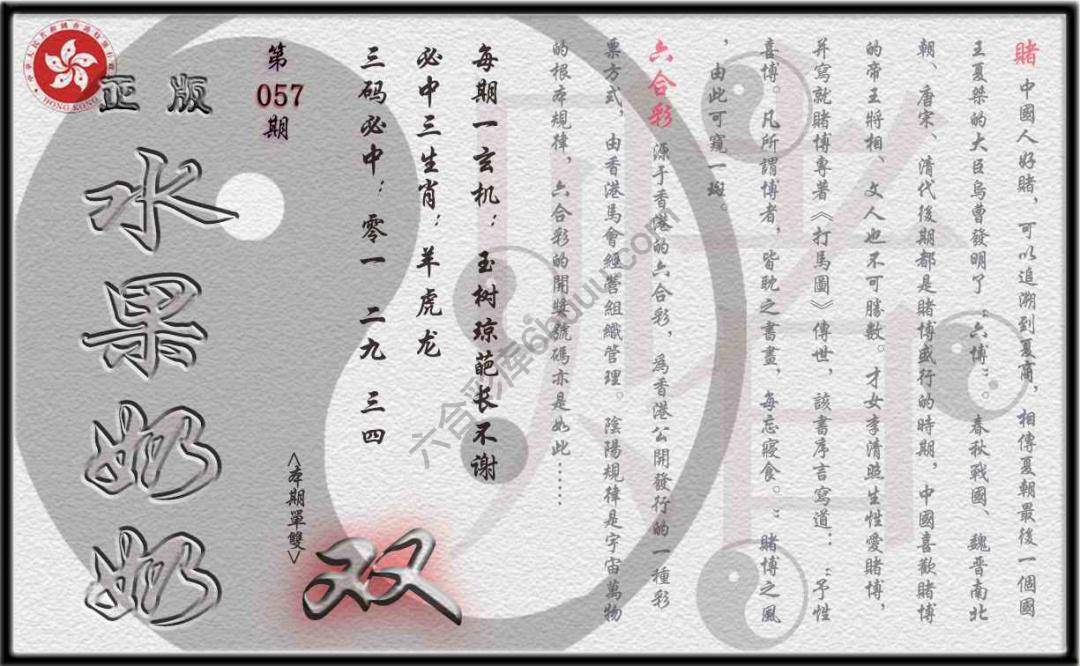 賭 中國人好賭，可以追溯到夏商，相傳夏朝最後一個國
王夏桀的大臣烏曹發明了“六博”。春秋戰國、魏晋南北
朝、唐宋、清代後期都是賭博盛行的時期，中國喜歡賭博
的帝王將相、文人也不可勝數。才女李清照生性愛賭博，
并寫就賭博專著《打馬圖》傳世，該書序言寫道：“予性
喜博。凡所謂博者，皆耽之書畫，每忘寢食。”賭博之風
，由此可窺一斑。
六合彩 源于香港的六合彩，爲香港公開發行的一種彩
票方式，由香港馬會經營組織管理。陰陽規律是宇宙萬物
的根本規律，六合彩的開獎號碼亦是如此……
每期一玄机：玉树琼葩长不谢
必中三生肖：羊虎龙
三码必中：零一 二九 三四
第
057
期
<本期單雙>
双
正版
水果奶奶
HONG KONG
六合彩库66uuu.com